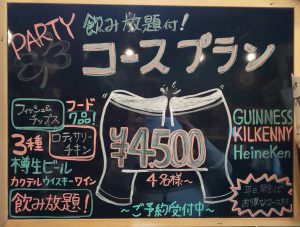 PARTY
飲み放題付!
コースプラン
フィッシュ&
チップス
フード
7品!
3種
ロティサリー
チキン
樽生ビール
カクテルウイスキーワイン
飲み放題!
¥4500
4名様〜
〜ご予約受付中〜
GUINNESS
KILKENNY
HEINEKEN
お得なコースも!